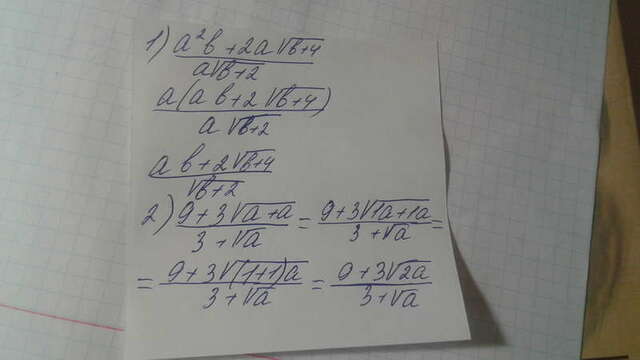 1) (a²b + 2a√(b+4)) / (a√(b+2))
(a(ab + 2√(b+4))) / (a√(b+2))
(ab + 2√(b+4)) / (√(b+2))
2) (9 + 3√(a+a)) / (3 + √a) = (9 + 3√(1a+1a)) / (3 + √a) =
= (9 + 3√((1+1)a)) / (3 + √a) = (9 + 3√(2a)) / (3 + √a)